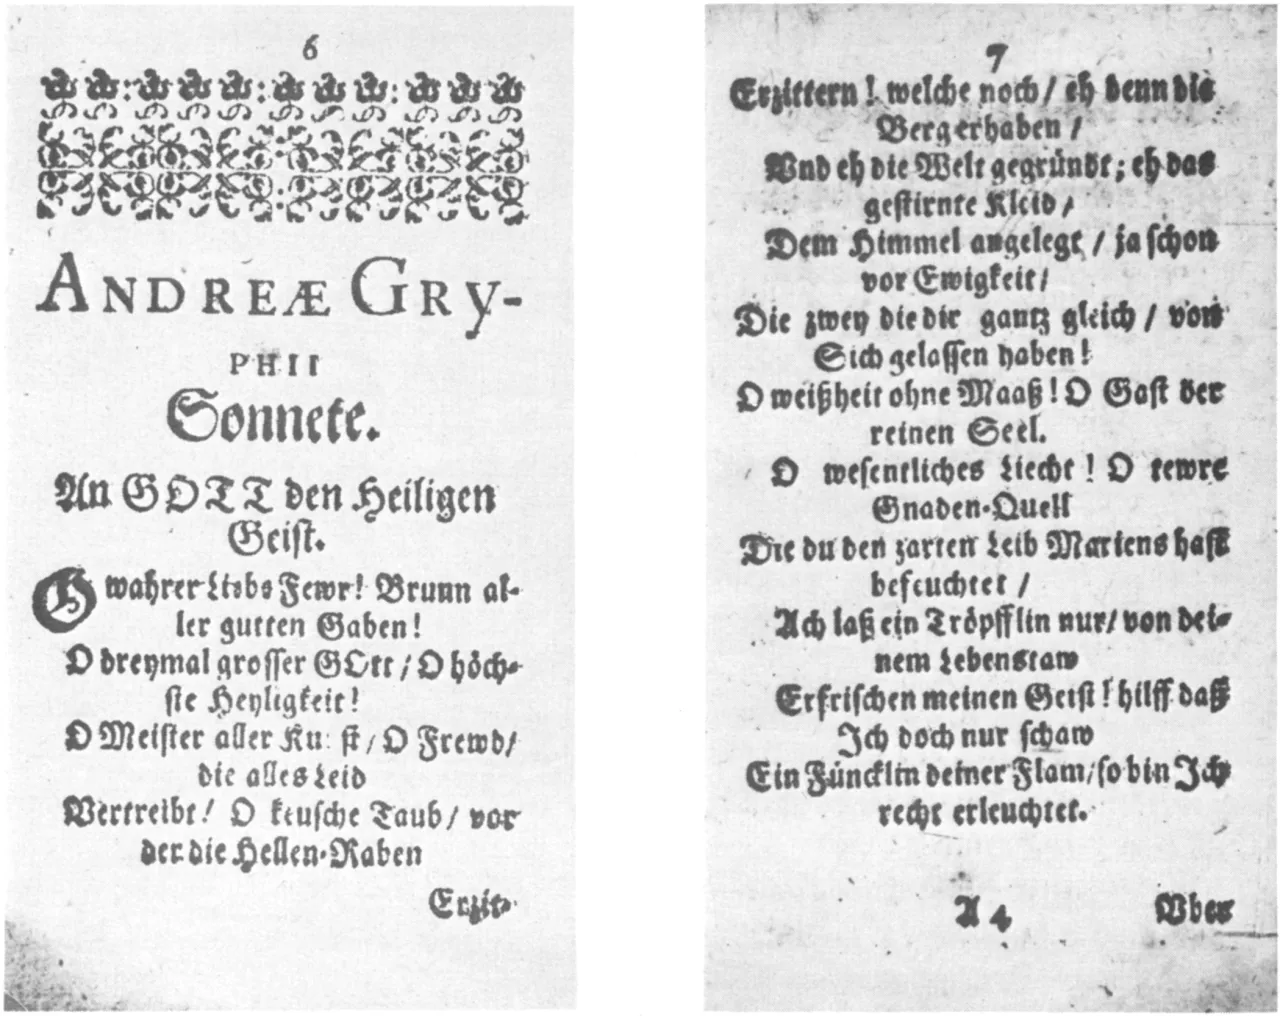 6
ANDREÆ GRY-
PHII
Sonnete.
An GOTT den Heiligen
Geist.
O wahrer Liebs Fewr! Brunn al-
ler gutten Gaben!
O dreymal grosser GOtt / O höch-
ste Heyligkeit!
O Meister aller Kunst / O Frewd /
die alles Leid
Vertreibt! O keusche Taub / vor
der die Hellen-Raben
Erzit-
7
Erzittern! welche noch / eh denn die
Berg erhaben /
Vnd eh die Welt gegründt; eh das
gestirnte Kleid /
Dem Himmel angelegt / ja schon
vor Ewigkeit /
Die zwey die dir gantz gleich / von
Sich gelassen haben!
O weißheit ohne Maaß! O Gast der
reinen Seel.
O wesentliches Liecht! O tewre
Gnaden-Quell
Die du den zarten Leib Mariens hast
befeuchtet /
Ach laß ein Tröpfflin nur / von dei-
nem Lebenstaw
Erfrischen meinen Geist! hilff daß
Ich doch nur schaw
Ein Füncklin deiner Flam / so bin Ich
recht erleuchtet.
A 4
Vber